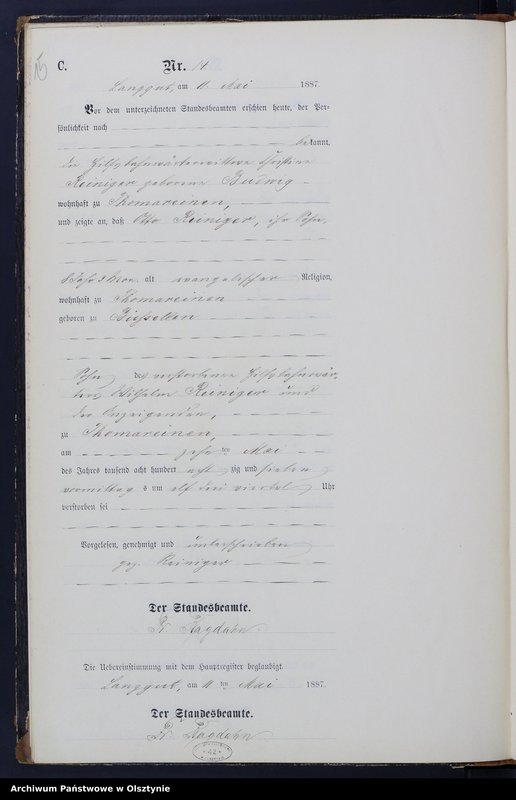 C.
Nr. 14
Langgut, am 11. Mai 1887.
Vor dem unterzeichneten Standesbeamten erschien heute, der Per-
sönlichkeit nach
bekannt,
die Hilfsbahnwärterwittwe Christine
Reiniger geborene Budwig
wohnhaft zu Thomareinen,
und zeigte an, daß Otto Reiniger, ihr Sohn,
alt evangelischer Religion,
wohnhaft zu Thomareinen
geboren zu Biessellen
Sohn des verstorbenen Hilfsbahnwär-
ters Wilhelm Reiniger und
der Anzeigenden,
zu Thomareinen,
am zehnten Mai
des Jahres tausend acht hundert achtzig und sieben
vormittags um elf drei viertel Uhr
verstorben sei
Vorgelesen, genehmigt und unterschrieben
gez. Reiniger
Der Standesbeamte.
Kagdahn
Die Uebereinstimmung mit dem Hauptregister beglaubigt.
Langgut, am 11ten Mai 1887.
Der Standesbeamte.
Kagdahn
Archiwum Państwowe w Olsztynie